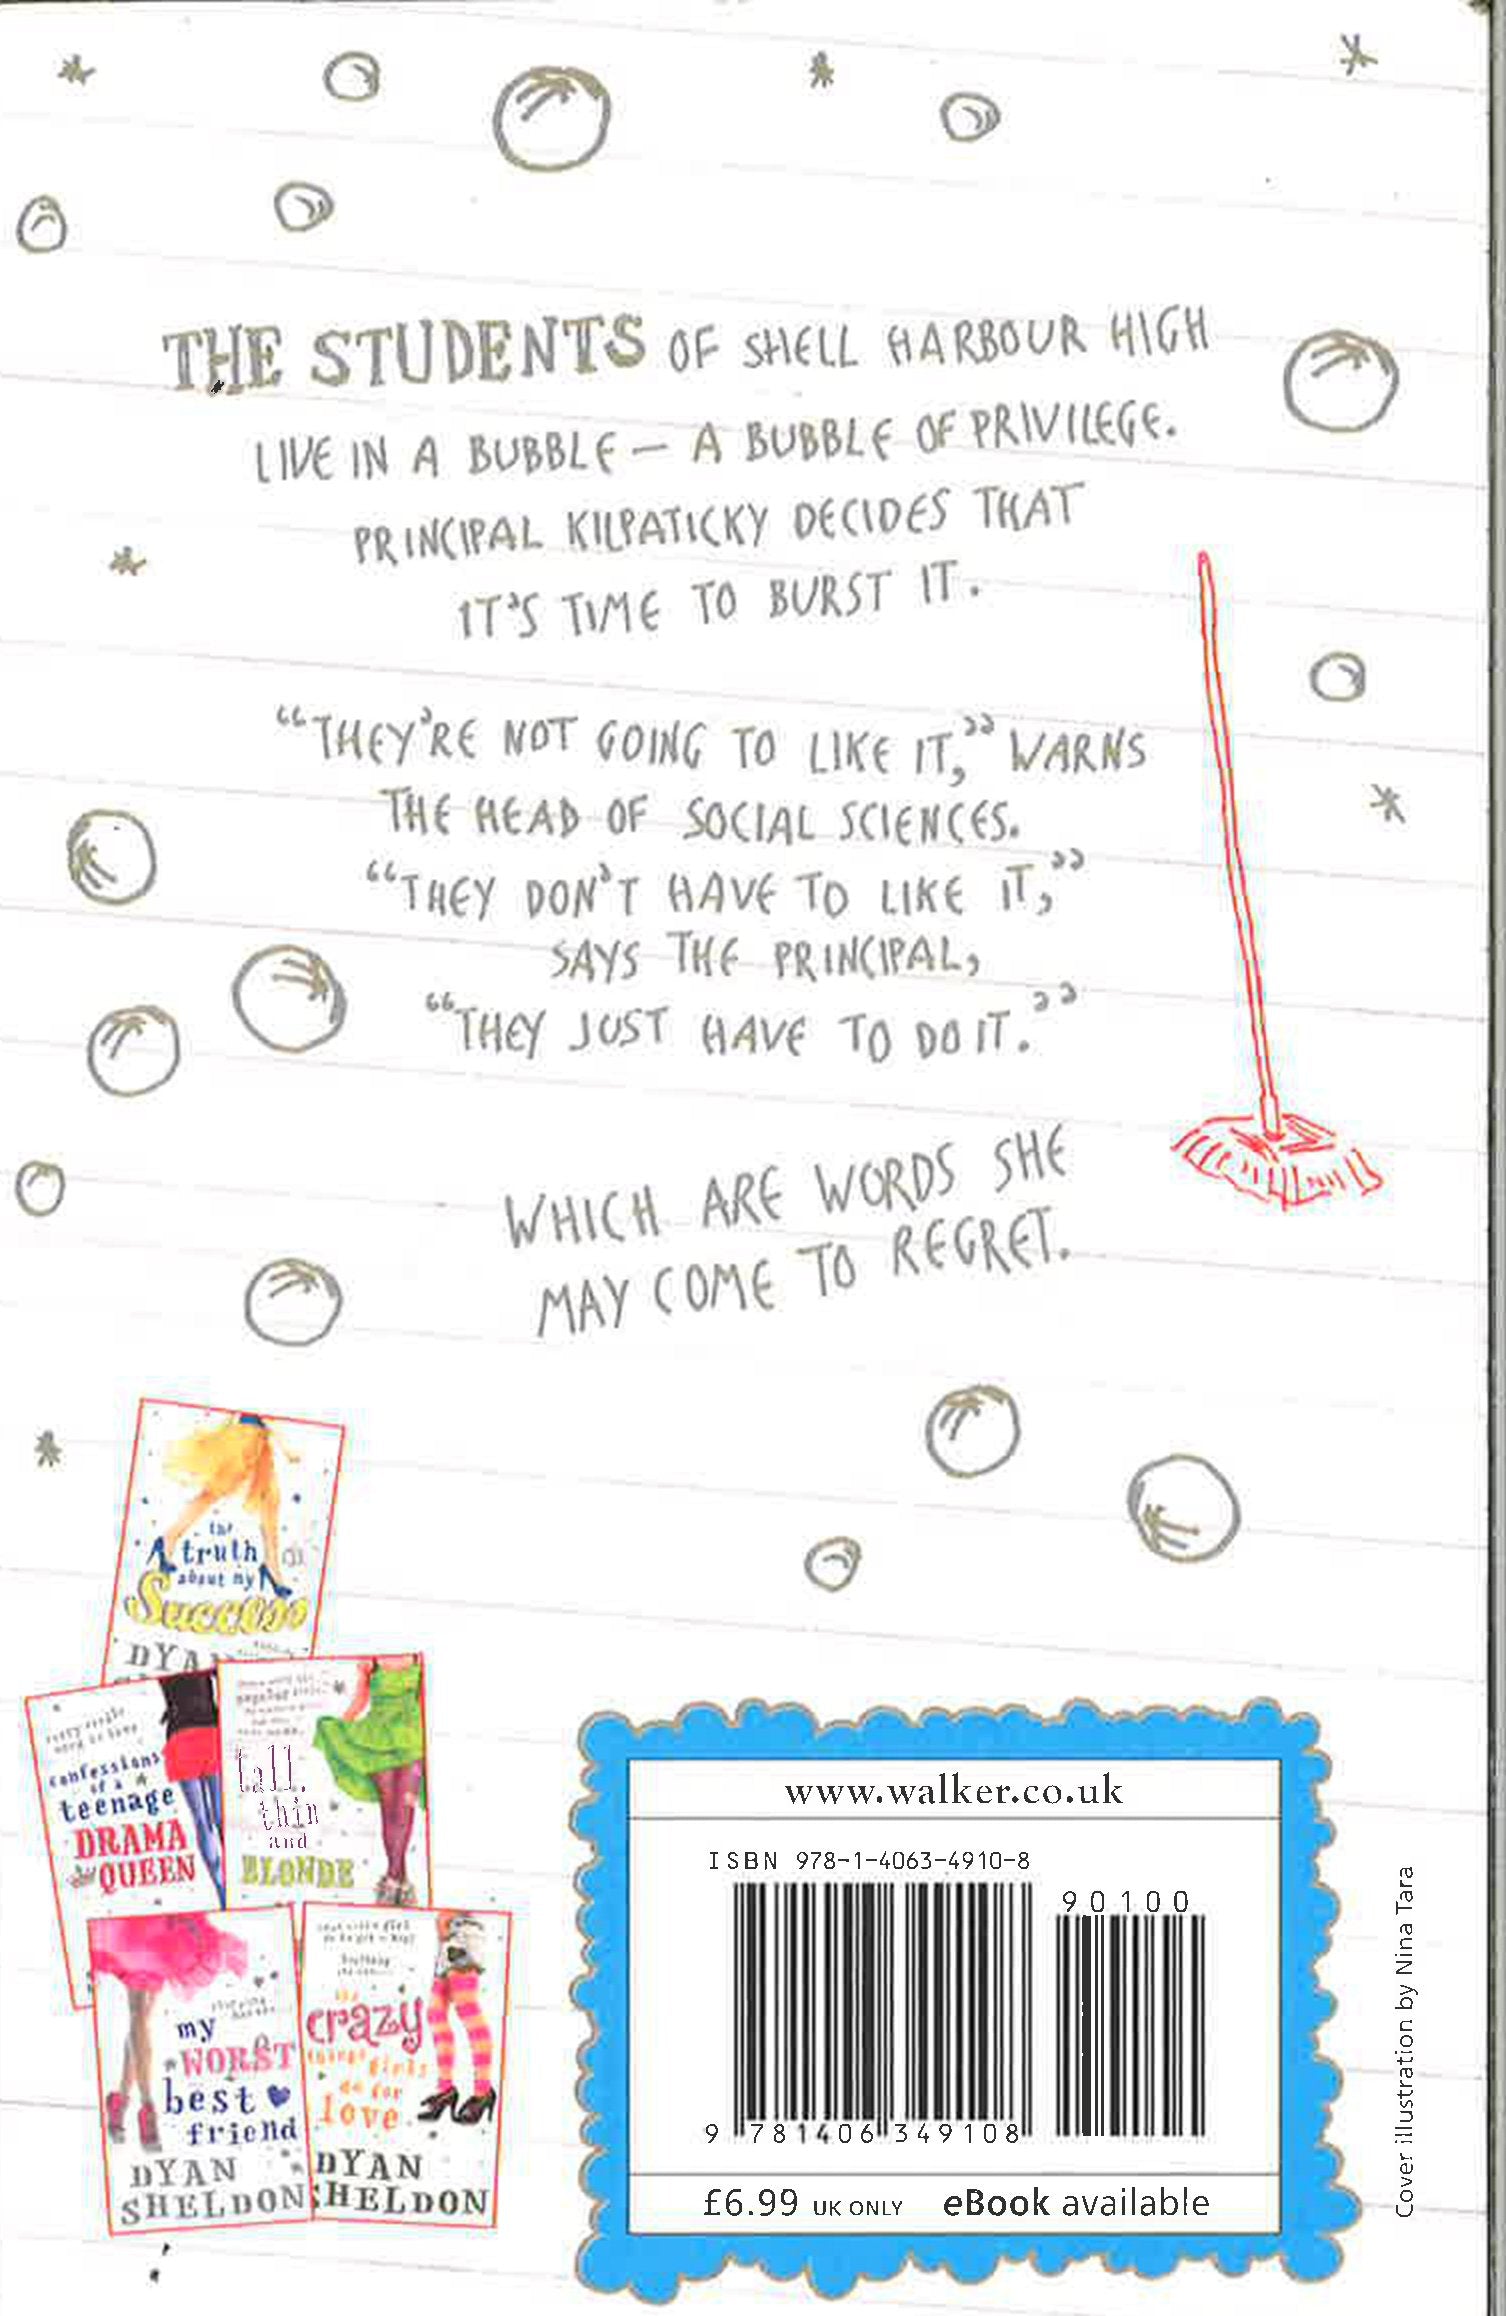 THE STUDENTS OF SHELL HARBOUR HIGH
LIVE IN A BUBBLE – A BUBBLE OF PRIVILEGE.
PRINCIPAL KILPATICKY DECIDES THAT
IT'S TIME TO BURST IT.
“THEY'RE NOT GOING TO LIKE IT,” WARNS
THE HEAD OF SOCIAL SCIENCES.
“THEY DON'T HAVE TO LIKE IT,”
SAYS THE PRINCIPAL,
“THEY JUST HAVE TO DO IT.”
WHICH ARE WORDS SHE
MAY COME TO REGRET.
the
truth
about my
Success
DYAN
confessions
of a
teenage
DRAMA
QUEEN
tall,
thin
and
BLONDE
my
WORST
best
friend
DYAN
SHELDON
crazy
things girls
do for
love
DYAN
SHELDON
www.walker.co.uk
ISBN 978-1-4063-4910-8
90100
9 781406 349108
£6.99 UK ONLY eBook available
Cover illustration by Nina Tara